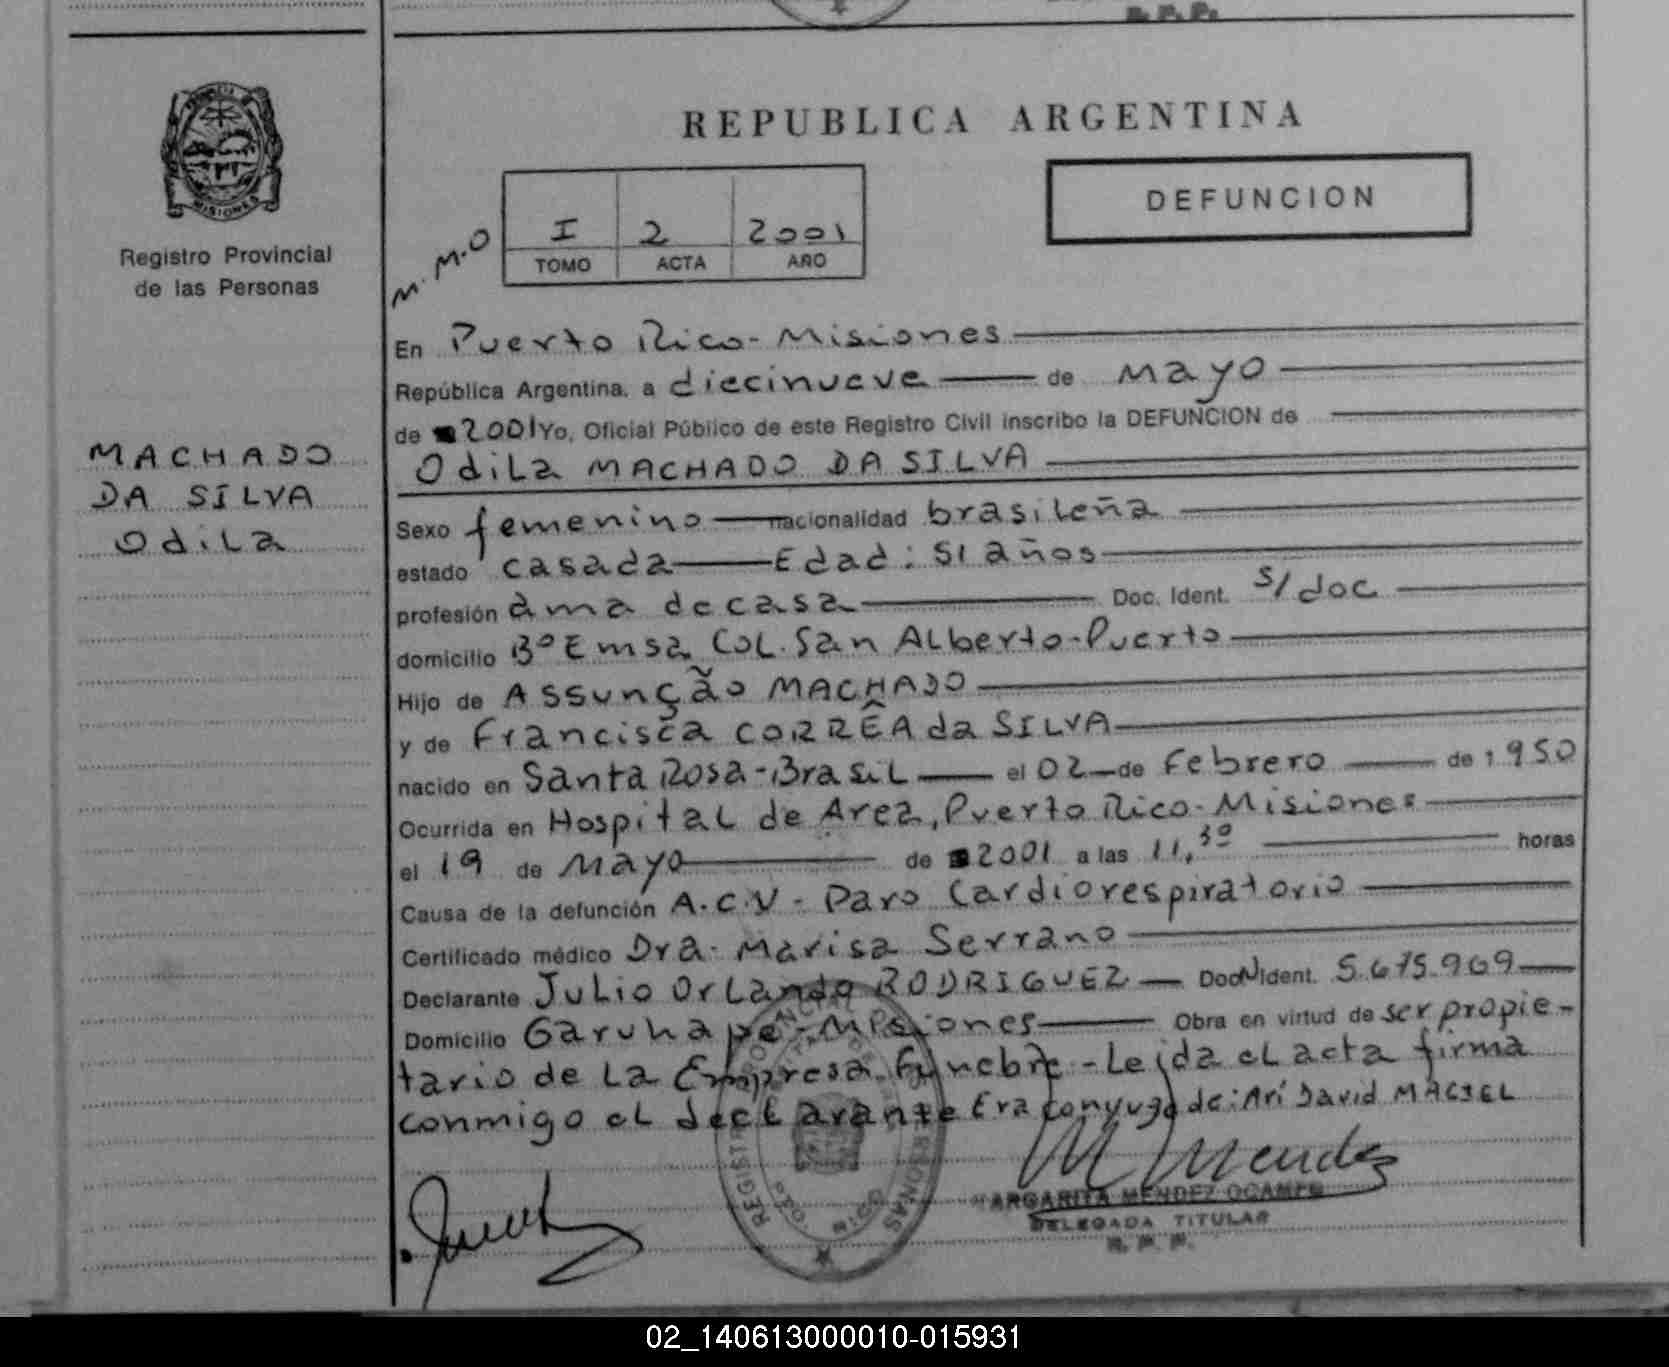 R. P. P.
REPUBLICA ARGENTINA
DEFUNCION
MISIONES
Registro Provincial
de las Personas
M. M. O
I 2 2001
TOMO ACTA AÑO
MACHADO
DA SILVA
Odila
En Puerto Rico - Misiones
República Argentina, a diecinueve de Mayo
de 2001 Yo, Oficial Público de este Registro Civil inscribo la DEFUNCION de
Odila MACHADO DA SILVA
Sexo femenino nacionalidad brasileña
estado casada Edad: 51 años
profesión ama de casa Doc. Ident. S/doc
domicilio Bº Emsa Col. San Alberto - Puerto
Hijo de Assunção MACHADO
y de Francisca CORRÊA da SILVA
nacido en Santa Rosa - Brasil el 02 de Febrero de 1950
Ocurrida en Hospital de Area, Puerto Rico - Misiones
el 19 de Mayo de 2001 a las 11,30 horas
Causa de la defunción A.C.V - Paro Cardiorespiratorio
Certificado médico Dra. Marisa Serrano
Declarante Julio Orlando RODRIGUEZ Doc. Ident. 5.675.969
Domicilio Garuhape - Misiones Obra en virtud de ser propie-
tario de la Empresa Funebre - Leida el acta firma
conmigo el declarante Era conyuge de: Ari David MACIEL
MARGARITA MENDEZ OCAMPO
DELEGADA TITULAR
R. P. P.
02_140613000010-015931